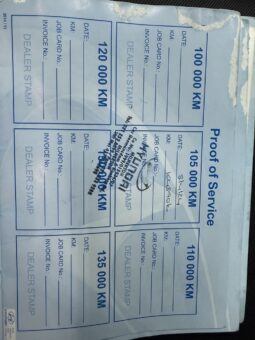 Proof of Service
100 000 KM
DATE:
KM:
JOB CARD No.:
INVOICE No.:
DEALER STAMP
105 000 KM
DATE:
KM:
JOB CARD No.:
INVOICE No.:
HYUNDAI
110 000 KM
DATE:
KM:
JOB CARD No.:
INVOICE No.:
DEALER STAMP
120 000 KM
DATE:
KM:
JOB CARD No.:
INVOICE No.:
DEALER STAMP
KM
DATE:
KM:
JOB CARD No.:
INVOICE No.:
DEALER STAMP
135 000 KM
DATE:
KM:
JOB CARD No.:
INVOICE No.:
DEALER STAMP